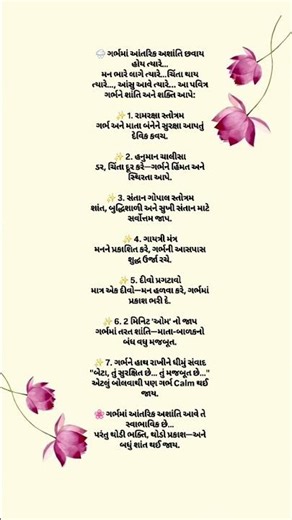 🌧️ ગર્ભમાં આંતરિક અશાંતિ છવાય
હોય ત્યારે...
મન ભારે લાગે ત્યારે...ચિંતા થાય
ત્યારે..., આંસુ આવે ત્યારે... આ પવિત્ર
ગર્ભને શાંતિ અને શક્તિ આપે:
✨ 1. રામરક્ષા સ્તોત્રમ
ગર્ભ અને માતા બંનેને સુરક્ષા આપતું
દૈવિક કવચ.
✨ 2. હનુમાન ચાલીસા
ડર, ચિંતા દૂર કરે—ગર્ભને હિંમત અને
સ્થિરતા આપે.
✨ 3. સંતાન ગોપાલ સ્તોત્રમ
શાંત, બુદ્ધિશાળી અને સુખી સંતાન માટે
સર્વોત્તમ જાપ.
✨ 4. ગાયત્રી મંત્ર
મનને પ્રકાશિત કરે, ગર્ભની આસપાસ
શુદ્ધ ઉર્જા રચે.
✨ 5. દીવો પ્રગટાવો
માત્ર એક દીવો—મન હળવા કરે, ગર્ભમાં
પ્રકાશ ભરી દે.
✨ 6. 2 મિનિટ 'ઓમ' નો જાપ
ગર્ભમાં તરત શાંતિ—માતા-બાળકનો
બંધ વધુ મજબૂત.
✨ 7. ગર્ભને હાથ રાખીને ધીમું સંવાદ
"બેટા, તું સુરક્ષિત છે... તું મજબૂત છે..."
એટલું બોલવાથી પણ ગર્ભ Calm થઈ
જાય.
🌸 ગર્ભમાં આંતરિક અશાંતિ આવે તે
સ્વાભાવિક છે...
પરંતુ થોડી ભક્તિ, થોડો પ્રકાશ—અને
બધું શાંત થઈ જાય.